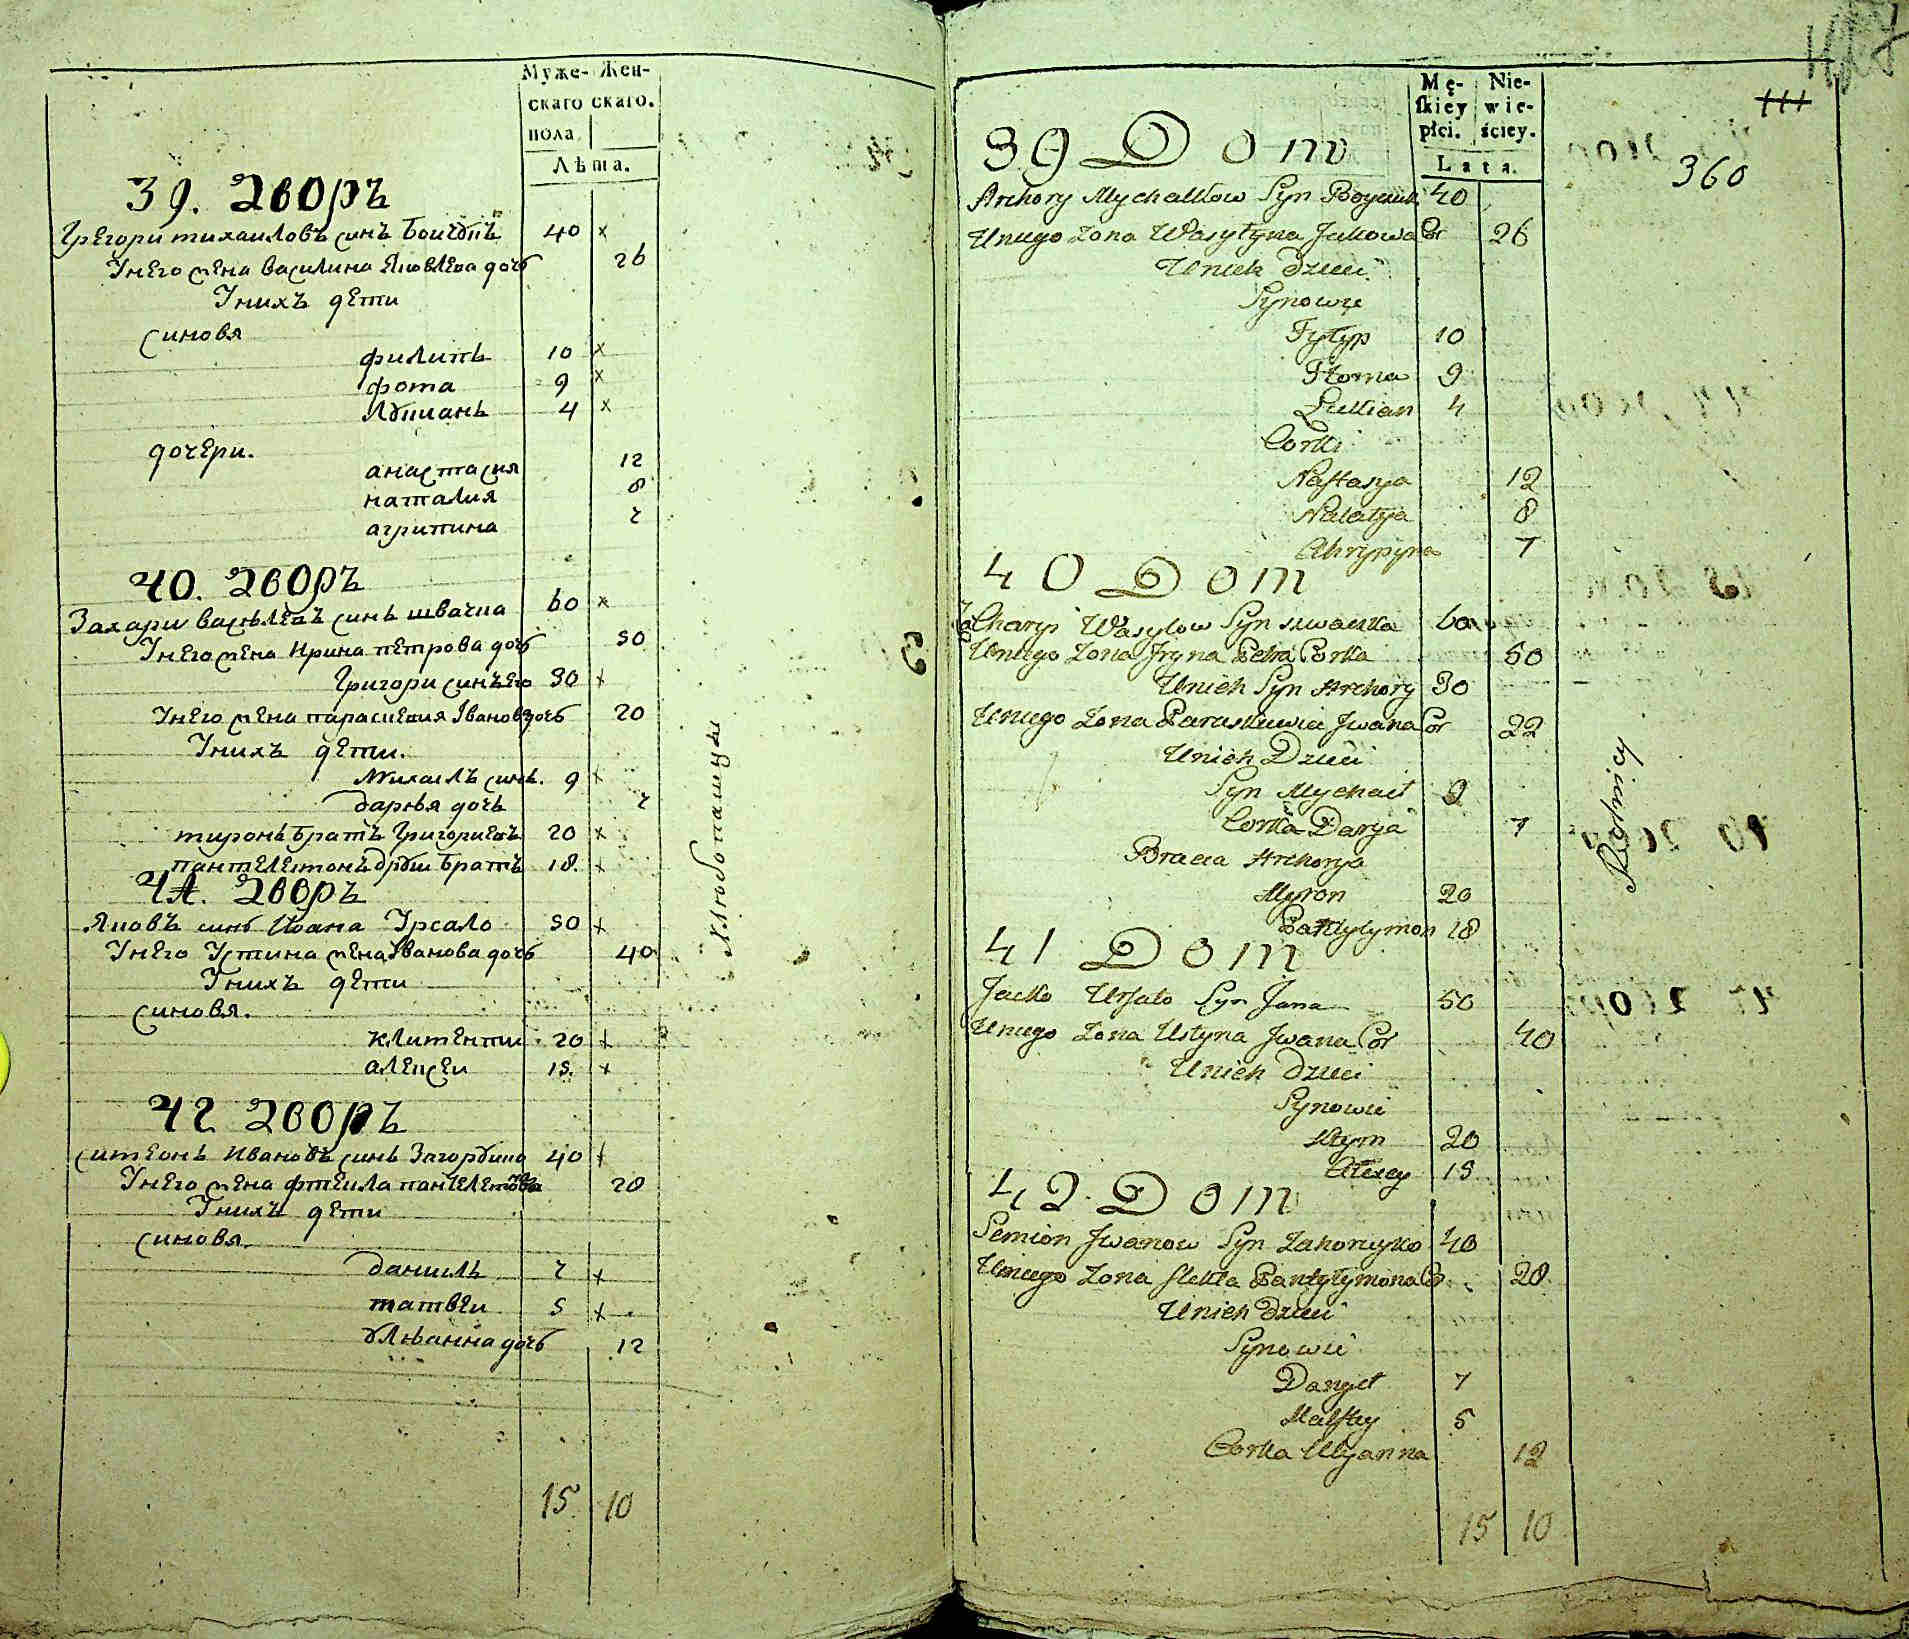 Муже- Жен-
скаго скаго.
пола.
Лѣта.
39. Дворъ
Григори михаиловъ синъ Боичукъ 40 x
Унего жена василина Яковлева дочь 26
Унихъ дети
синовя
филипъ 10 x
фома 9 x
Лукиань 4 x
дочери.
анастасия 12
наталия 8
агрипина 7
40. Дворъ
Захари василевъ синь швачка 60 x
Унего жена Ирина петрова дочь 50
Григори синъ его 30 x
Унего жена параскевия Іванов дочь 20
Унихъ дети.
Михаилъ синь. 9 x
дарья дочь 7
миронь братъ Григориевъ 20 x
пантелемонъ други братъ 18. x
41. Дворъ
Яковъ синь Ивана Урсало 50 x
Унего Устина жена Іванова дочь 40
Унихъ дети
синовя.
климентии 20 x
алексеи 15. x
42 Дворъ
симеонь Ивановъ синь Загорбико 40 x
Унего жена фтекла пантелемонова 28
Унихъ дети
синовя
данииль 7 x
матвеи 5 x
улианна дочь 12
15 10
Хлюбопашцы
Mę- Nie-
skiey wie-
płci. ściey.
Lata.
111
360
39 Dom
Hrehory Mychalkow Syn Boyczuk 40
Uniego Zona Wasylyna Jakowa Cor 26
Unich Dzieci
Synowie
Fylyp 10
Homa 9
Lukian 4
Corki
Nastasya 12
Natalya 8
Ahrypyna 7
40 Dom
Zacharyi Wasylow Syn szwaczka 60
Uniego Zona Iryna Petra Corka 50
Unich Syn Hrehory 30
Uniego Zona Paraskiewia Jwana Cor 22
Unich Dzieci
Syn Mychail 9
Corka Darya 7
Bracia Hrehorya
Myron 20
Pantylymon 18
41 Dom
Jacko Ursalo Syn Jana 50
Uniego Zona Ustyna Jwana Cor 40
Unich Dzieci
Synowie
Klym 20
Alexey 15
42 Dom
Semion Jwanow Syn Zahorwyko 40
Uniego Zona flekla Pantylymona C 28
Unich Dzieci
Synowie
Danyel 7
Matfiey 5
Corka Ulyanna 12
15 10
Rolnicy